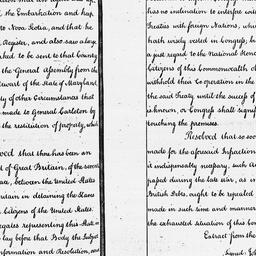 the Embarkation and hap
to Nova Scotia, and that he
Register, and also saw a large
asked to be sent to that County
the General Assembly from the
Stewart of the State of Maryland,
ty of other Circumstances that
made to General Carleton by
the restitution of property, which
ved that there has been an
d of Great Britain, of the second
ace, between the United States
Britain in detaining the Slaves
Citizens of the United States.
egates representing this State in
lay before that Body the Subject
Information and Resolution, and
has no inclination to interfere with
Treaties with foreign Nations, wh
hath wisely vested in Congress; b
a just regard to the National Honor
Citizens of this Commonwealth o
withhold their Co operation in the
the said Treaty until the success of
is known, or Congress shall signify
touching the premises.
Resolved that so soon
made for the aforesaid Infraction
it indispensably necessary, such A
passed during the late war, as in
British Debts, ought to be repealed
made in such time and manner
the exhausted situation of this Co
Extract from the